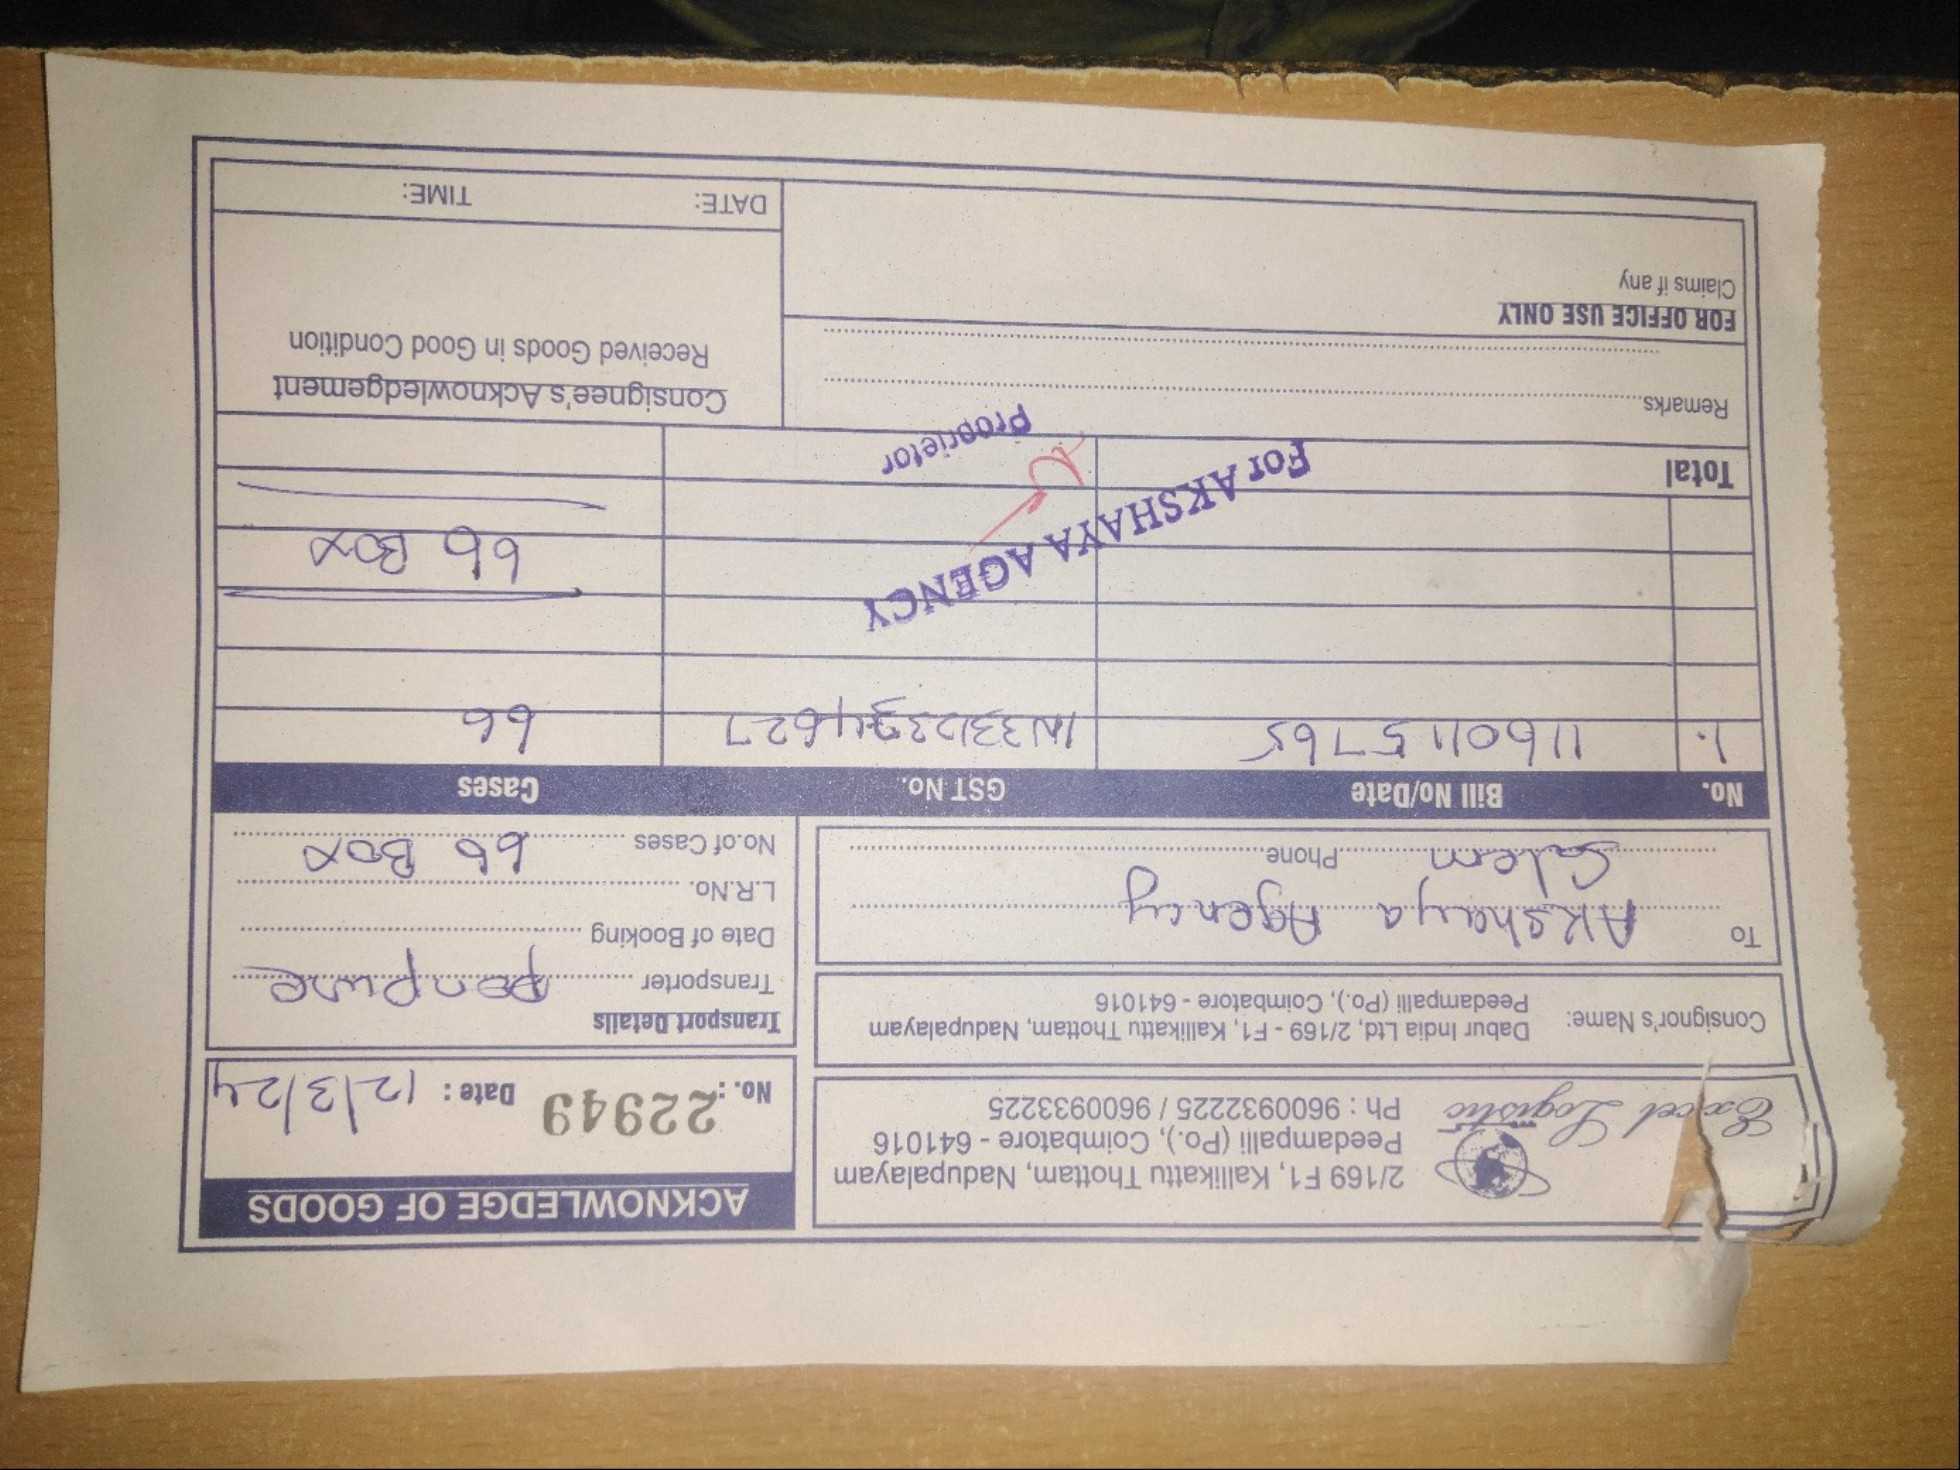 Excel Logistic
2/169 F1, Kallikattu Thottam, Nadupalayam
Peedampalli (Po.), Coimbatore - 641016
Ph : 9600932225 / 9600933225
ACKNOWLEDGE OF GOODS
No. : 22949 Date : 12/3/24
Consignor's Name: Dabur India Ltd, 2/169 - F1, Kallikattu Thottam, Nadupalayam
Peedampalli (Po.), Coimbatore - 641016
To Akshaya Agency
Salem Phone
Transport Details
Transporter
Date of Booking
L.R.No.
No.of Cases 66 Box
No. Bill No/Date GST No. Cases
1. 1160115765 66
66 Box
For AKSHAYA AGENCY
Proprietor
Total
Remarks
FOR OFFICE USE ONLY
Claims if any
Consignee's Acknowledgement
Received Goods in Good Condition
DATE: TIME: